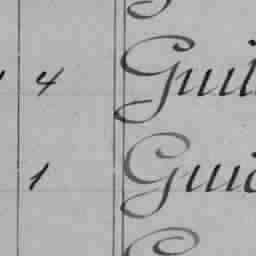 4 Guil
1 Guid